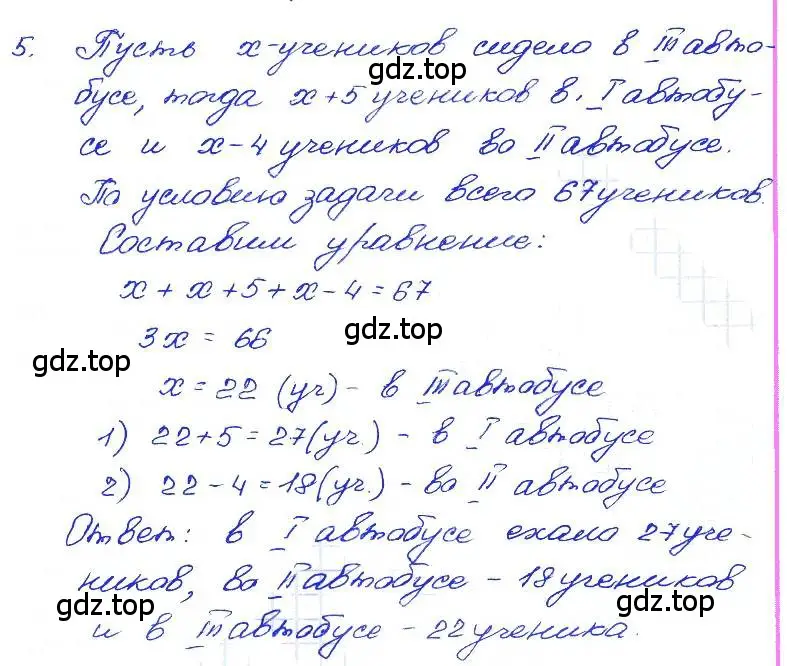 5. Пусть x-учеников сидело в III авто-
бусе, тогда x+5 учеников в I автобу-
gdz.top
се и x-4 учеников во II автобусе.
По условию задачи всего 67 учеников.
Составим уравнение:
x + x + 5 + x - 4 = 67
3x = 66
gdz.top
gdz.top
x = 22 (уч) - в III автобусе
1) 22+5=27(уч.) - в I автобусе
2) 22-4=18(уч.) - во II автобусе
gdz.top
Ответ: в I автобусе ехало 27 уче-
ников, во II автобусе - 18 учеников
gdz.top
gdz.top
и в III автобусе - 22 ученика.